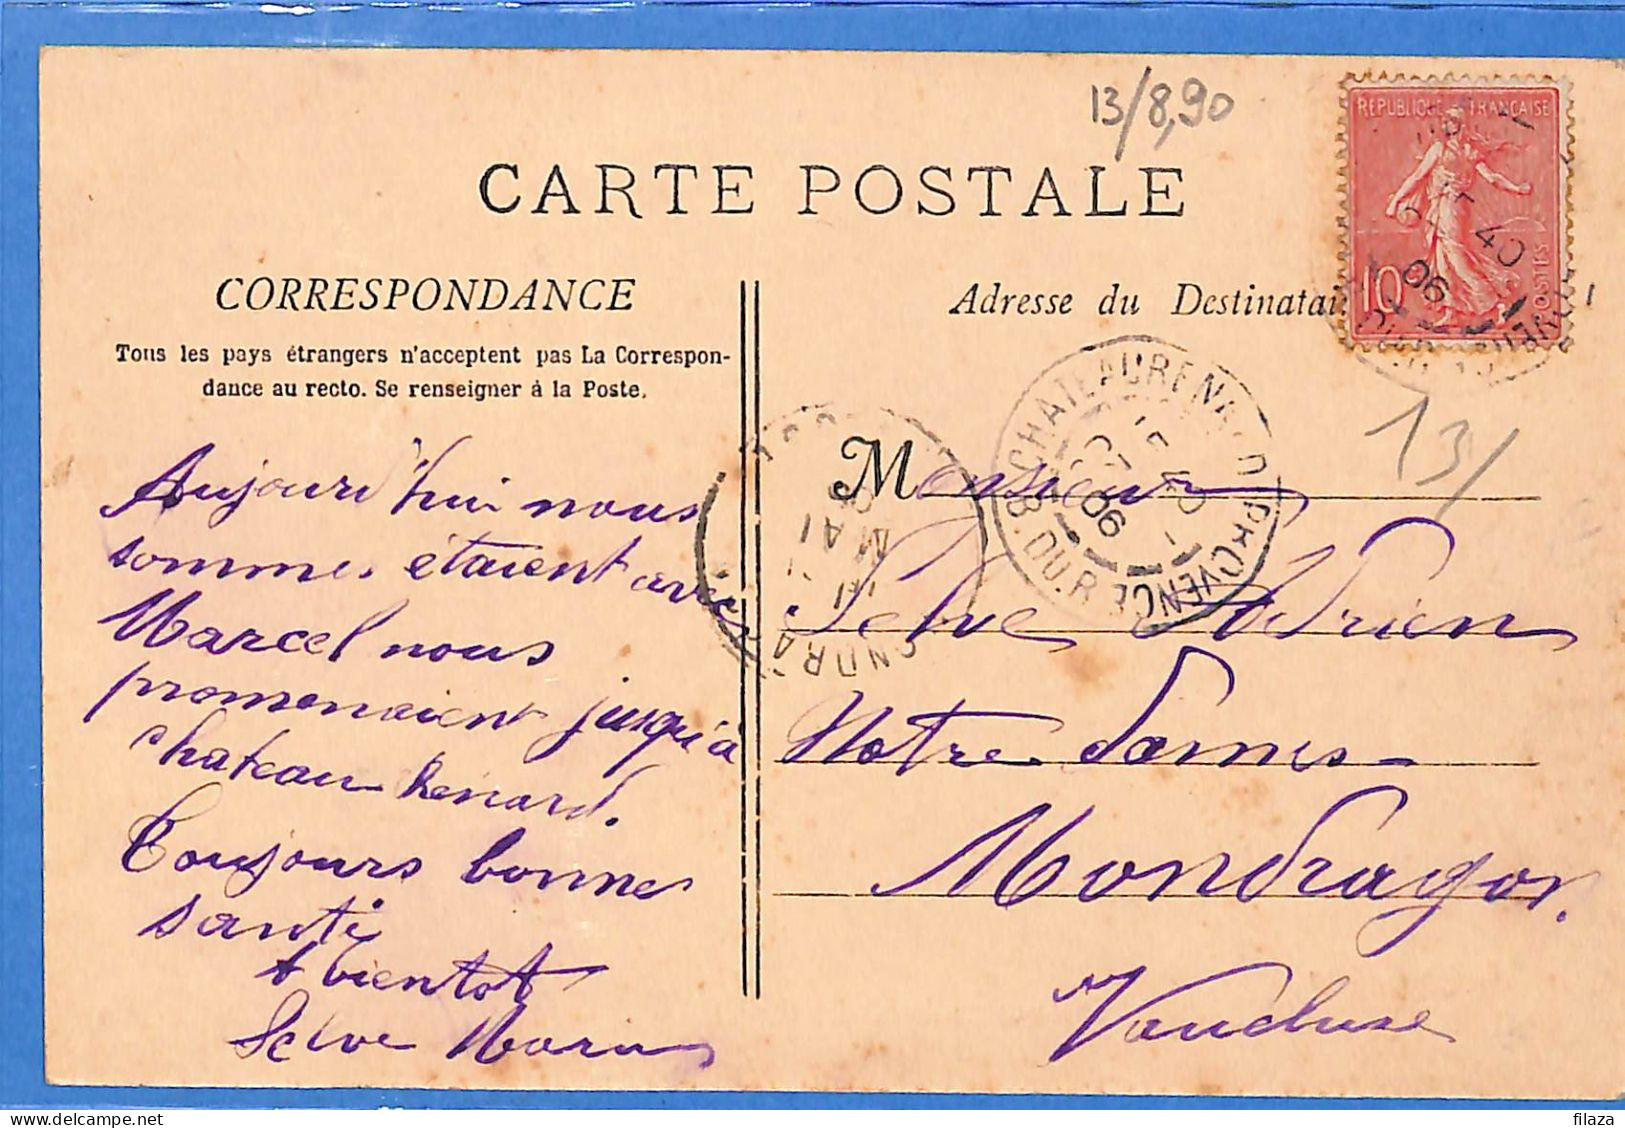 13/8,90
CARTE POSTALE
REPUBLIQUE FRANÇAISE
10c
POSTES
06
CORRESPONDANCE
Tous les pays étrangers n'acceptent pas La Correspon-
dance au recto. Se renseigner à la Poste.
Adresse du Destinatai
13/
CHATEAURENARD PROVENCE
B. DU R.
06
MAI
Aujourd'hui nous
sommes étaient avec
Marcel nous
promenaient jusqu'à
chateau renard.
Toujours bonnes
santé
A bientot
Selve Marius
Monsieur
Selve Adrien
Notre Dames
Mondragon.
Vaucluse
filaza